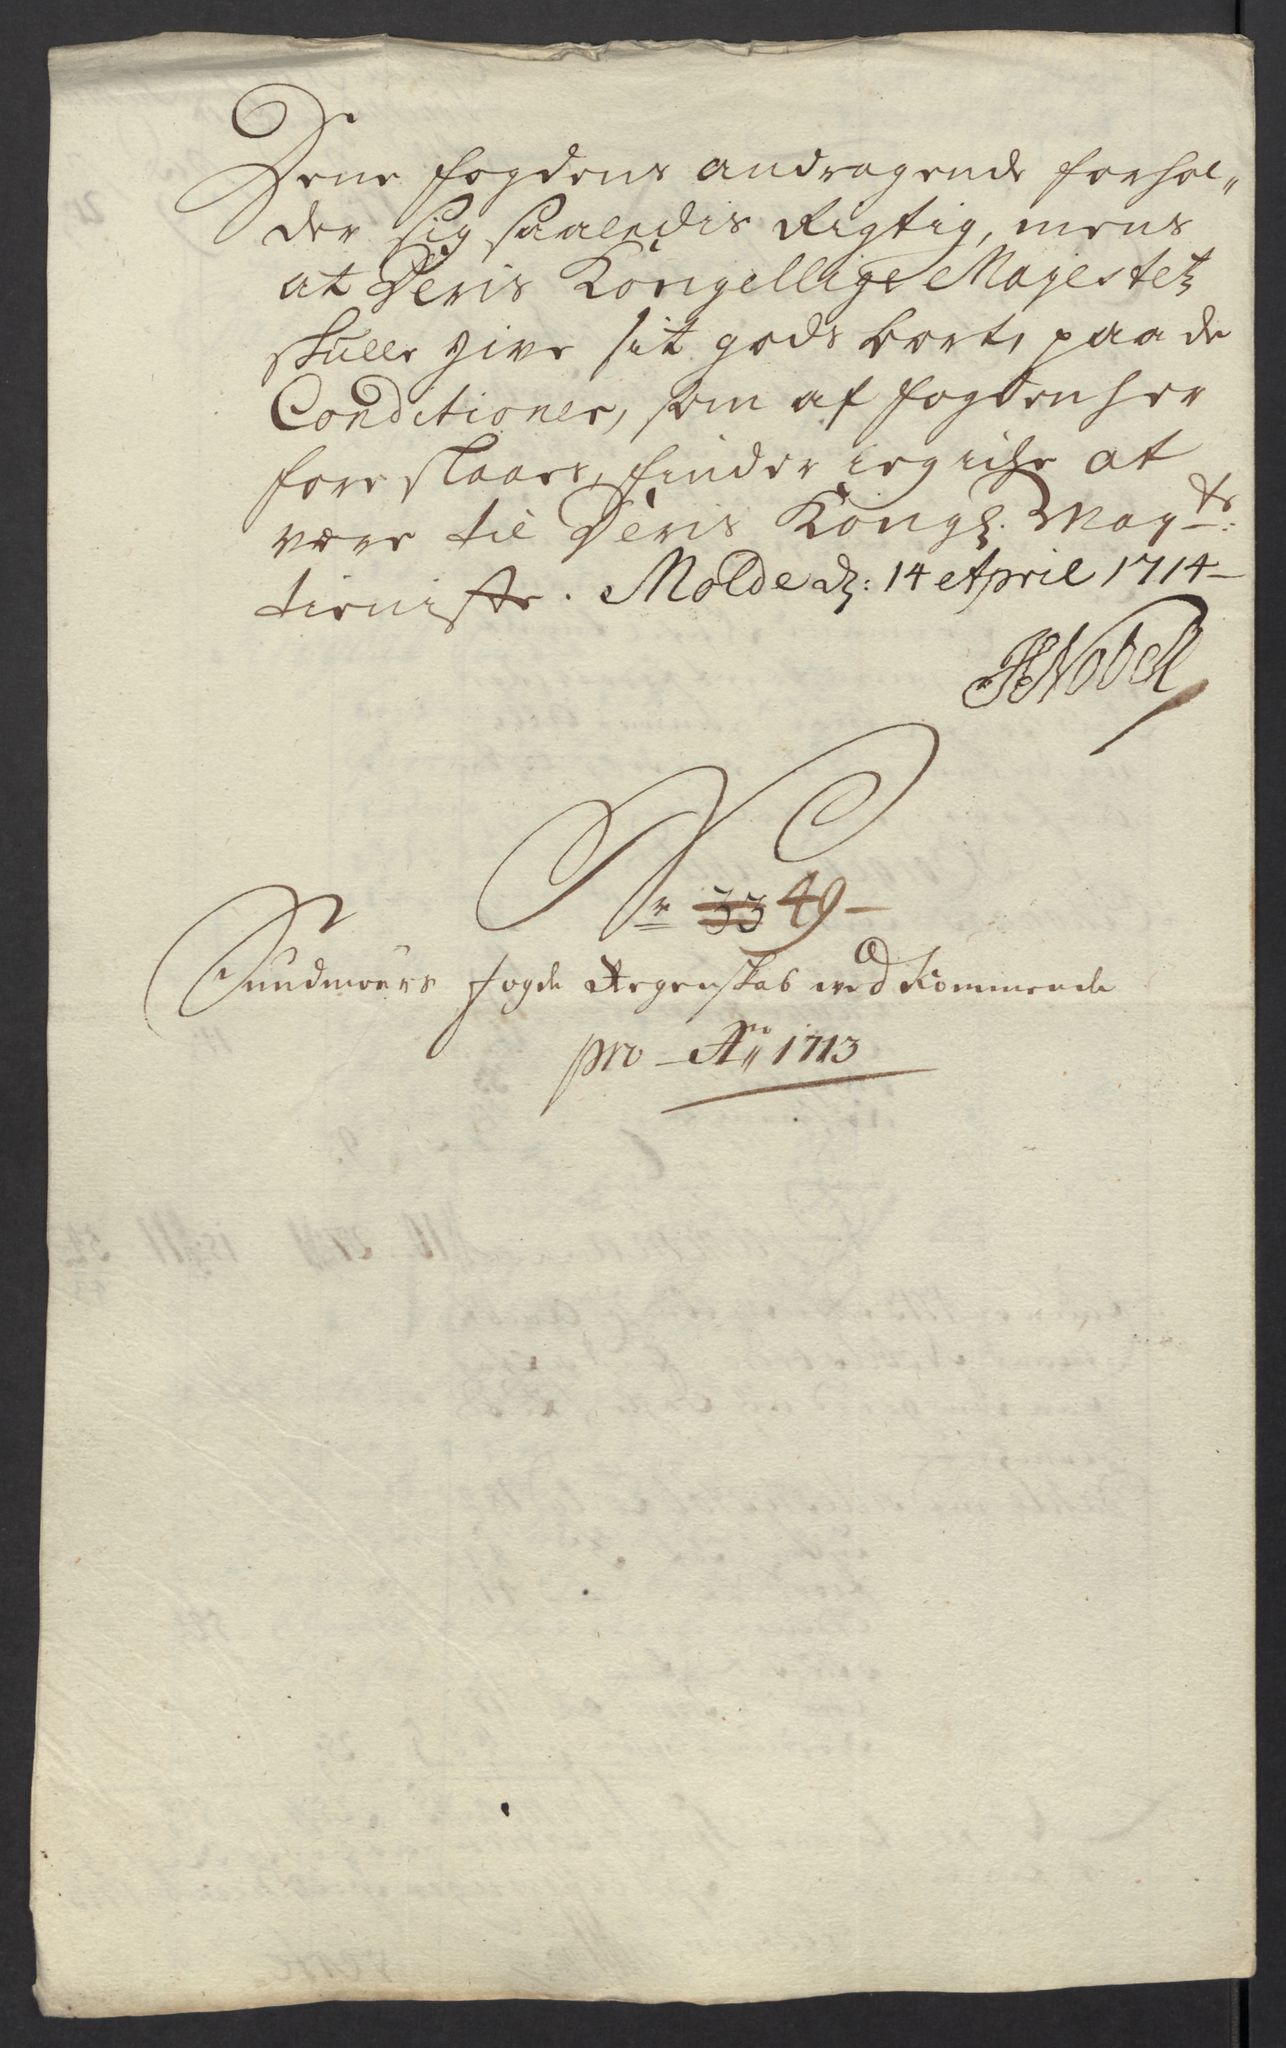 Dene fogdens andragende forhol„
der sig saaledis Rigtig, mens
at Deris Kongellige Mayestetz
skulle give sit gods bort, paa de
Conditioner, som af fogden her
foreslaaes, finder ieg iche at
være til Deris Kongl. Mayts:
tieniste. Molde d: 14 April 1714
HNobell
Nr 33 49
Sundmoers fogde Regenskab wed kommende
pro Ao 1713